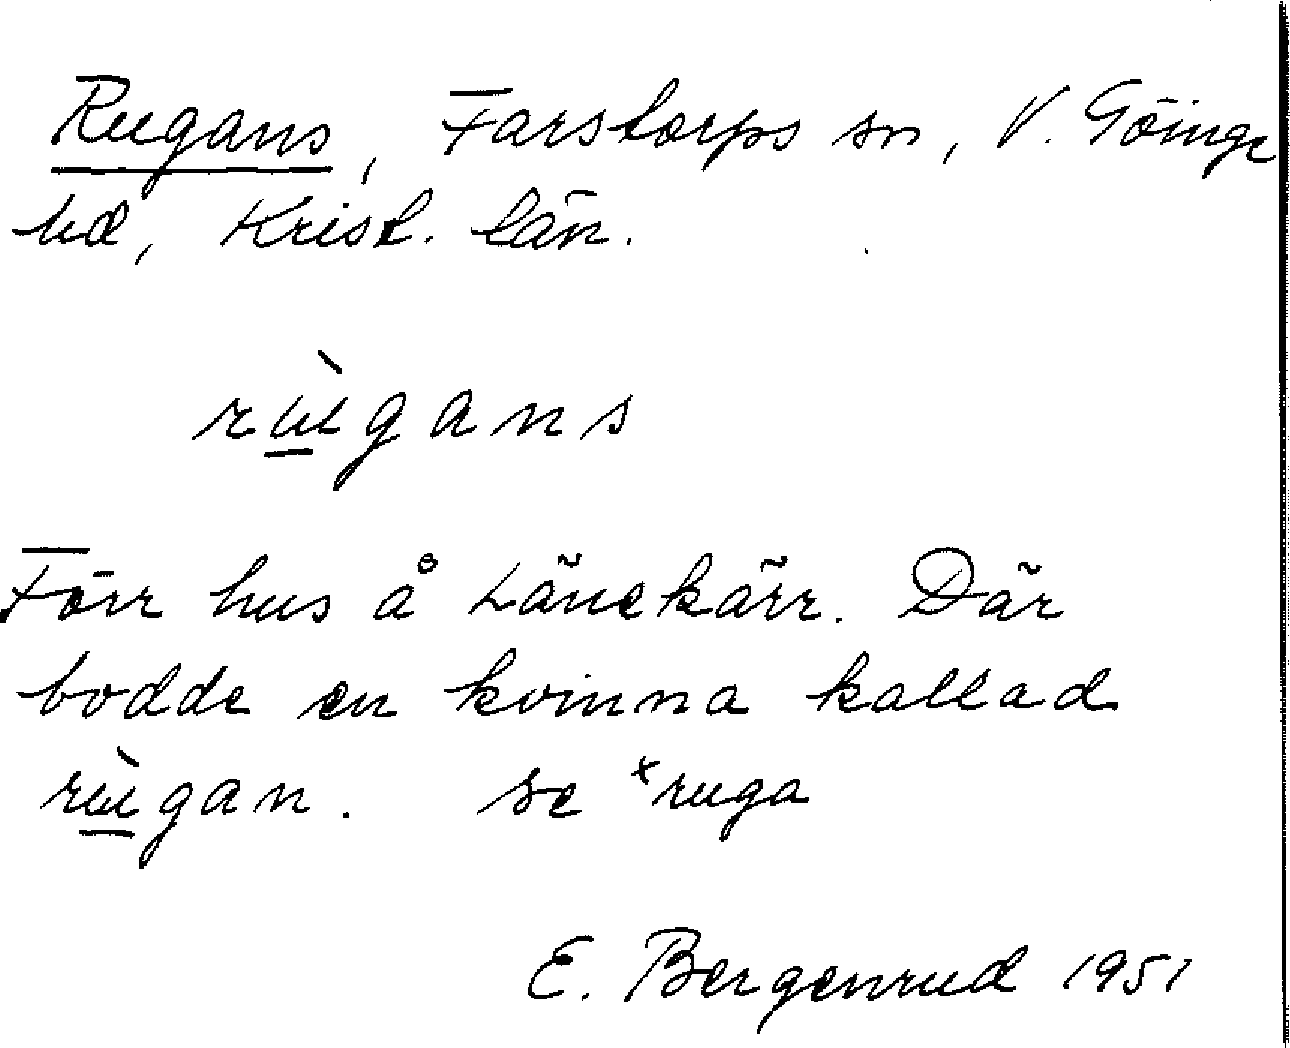 Rugans, Farstorps sn, V. Göinge
hd, Krist. län.
rɯ̱̀gans
Förr hus å Länekärr. Där
bodde en kvinna kallad
rɯ̱̀gan. se ˣruga
E. Bergenrud 1951